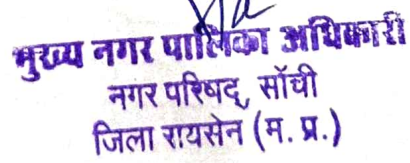 मुख्य नगर पालिका अधिकारी
नगर परिषद्, साँची
जिला रायसेन (म. प्र.)